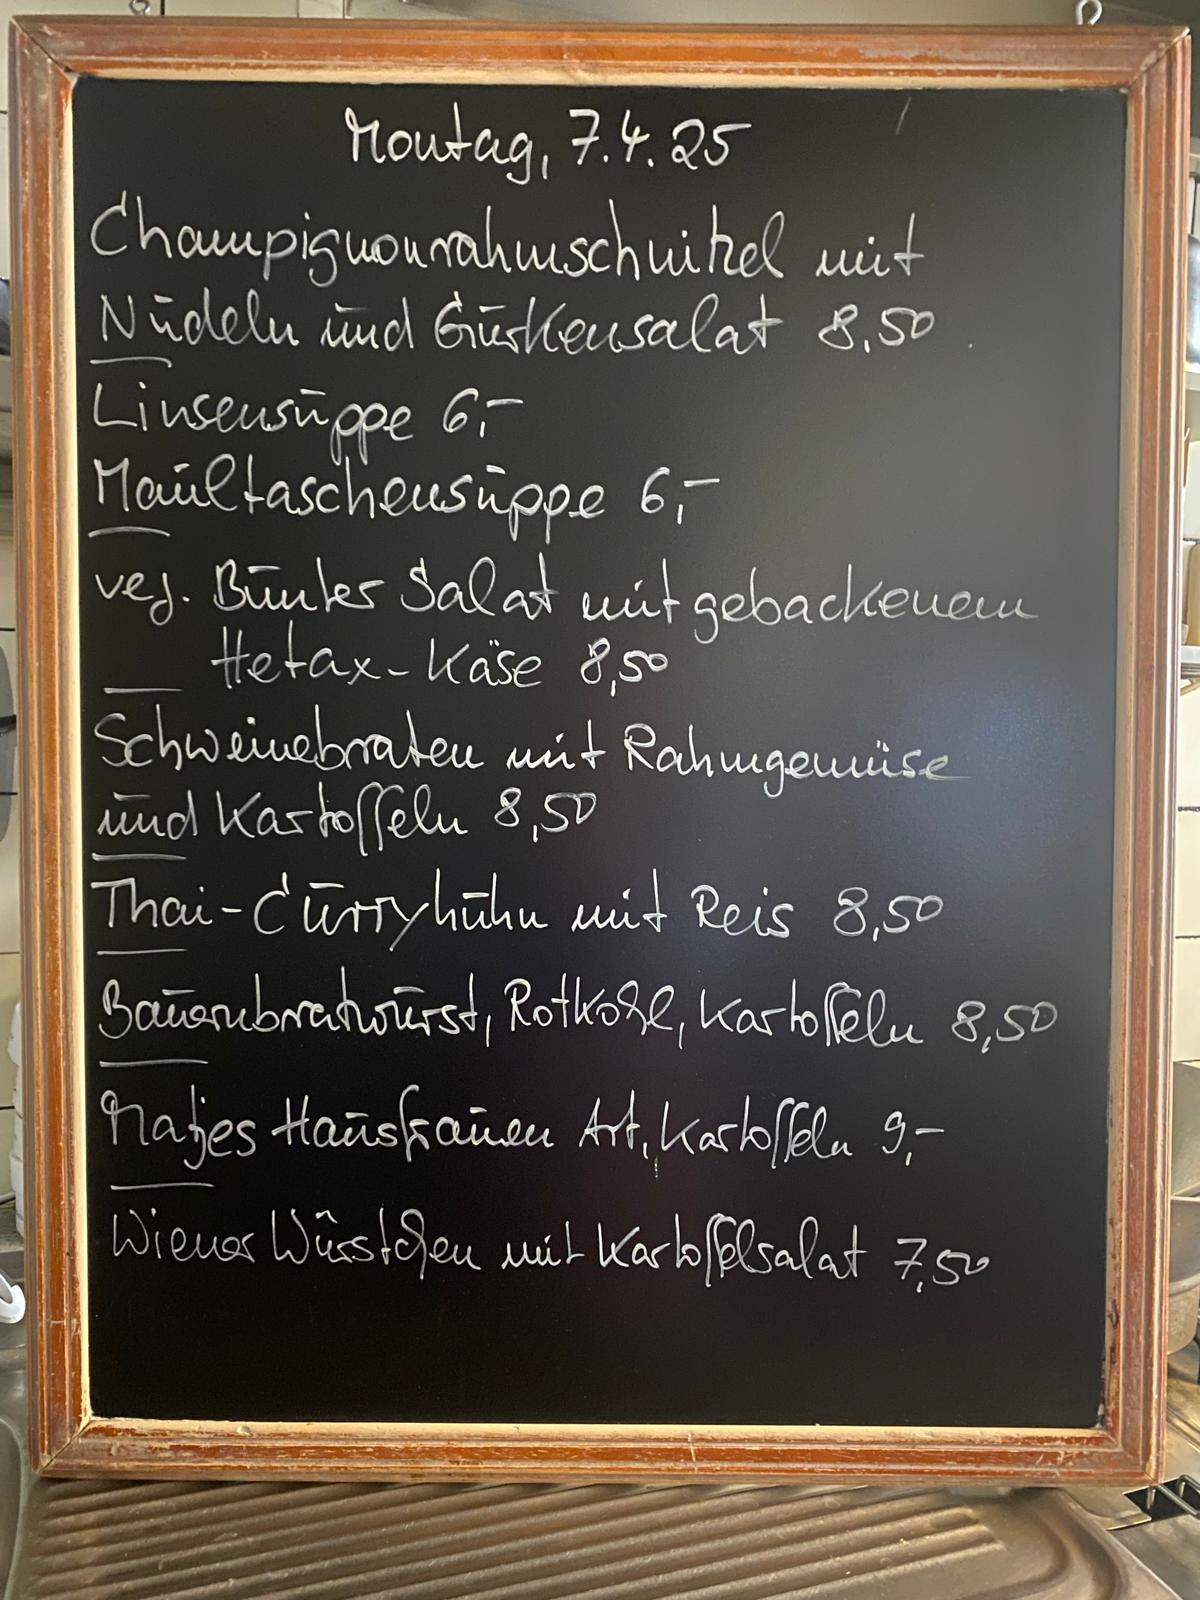 Montag, 7.4.25
Champignonrahmschnitzel mit
Nudeln und Gurkensalat 8,50
Linsensuppe 6,-
Maultaschensuppe 6,-
veg. Bunter Salat mit gebackenem
Hetax-Käse 8,50
Schweinebraten mit Rahmgemüse
und Kartoffeln 8,50
Thai-Curryhuhn mit Reis 8,50
Bauernbratwurst, Rotkohl, Kartoffeln 8,50
Matjes Hausfrauen Art, Kartoffeln 9,-
Wiener Würstchen mit Kartoffelsalat 7,50